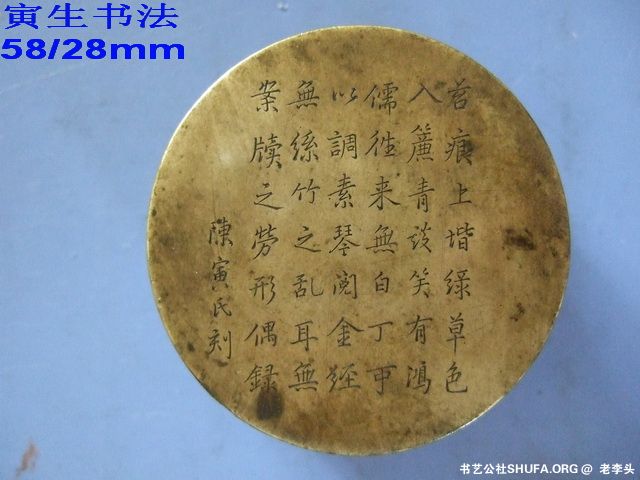 寅生书法
58/28mm
苔痕上堦緑草色
入簾青談笑有鴻
儒徃来無白丁可
以調素琴閲金經
無絲竹之乱耳無
案牘之勞形偶録
陳寅氏刻
书艺公社SHUFA.ORG @ 老李头